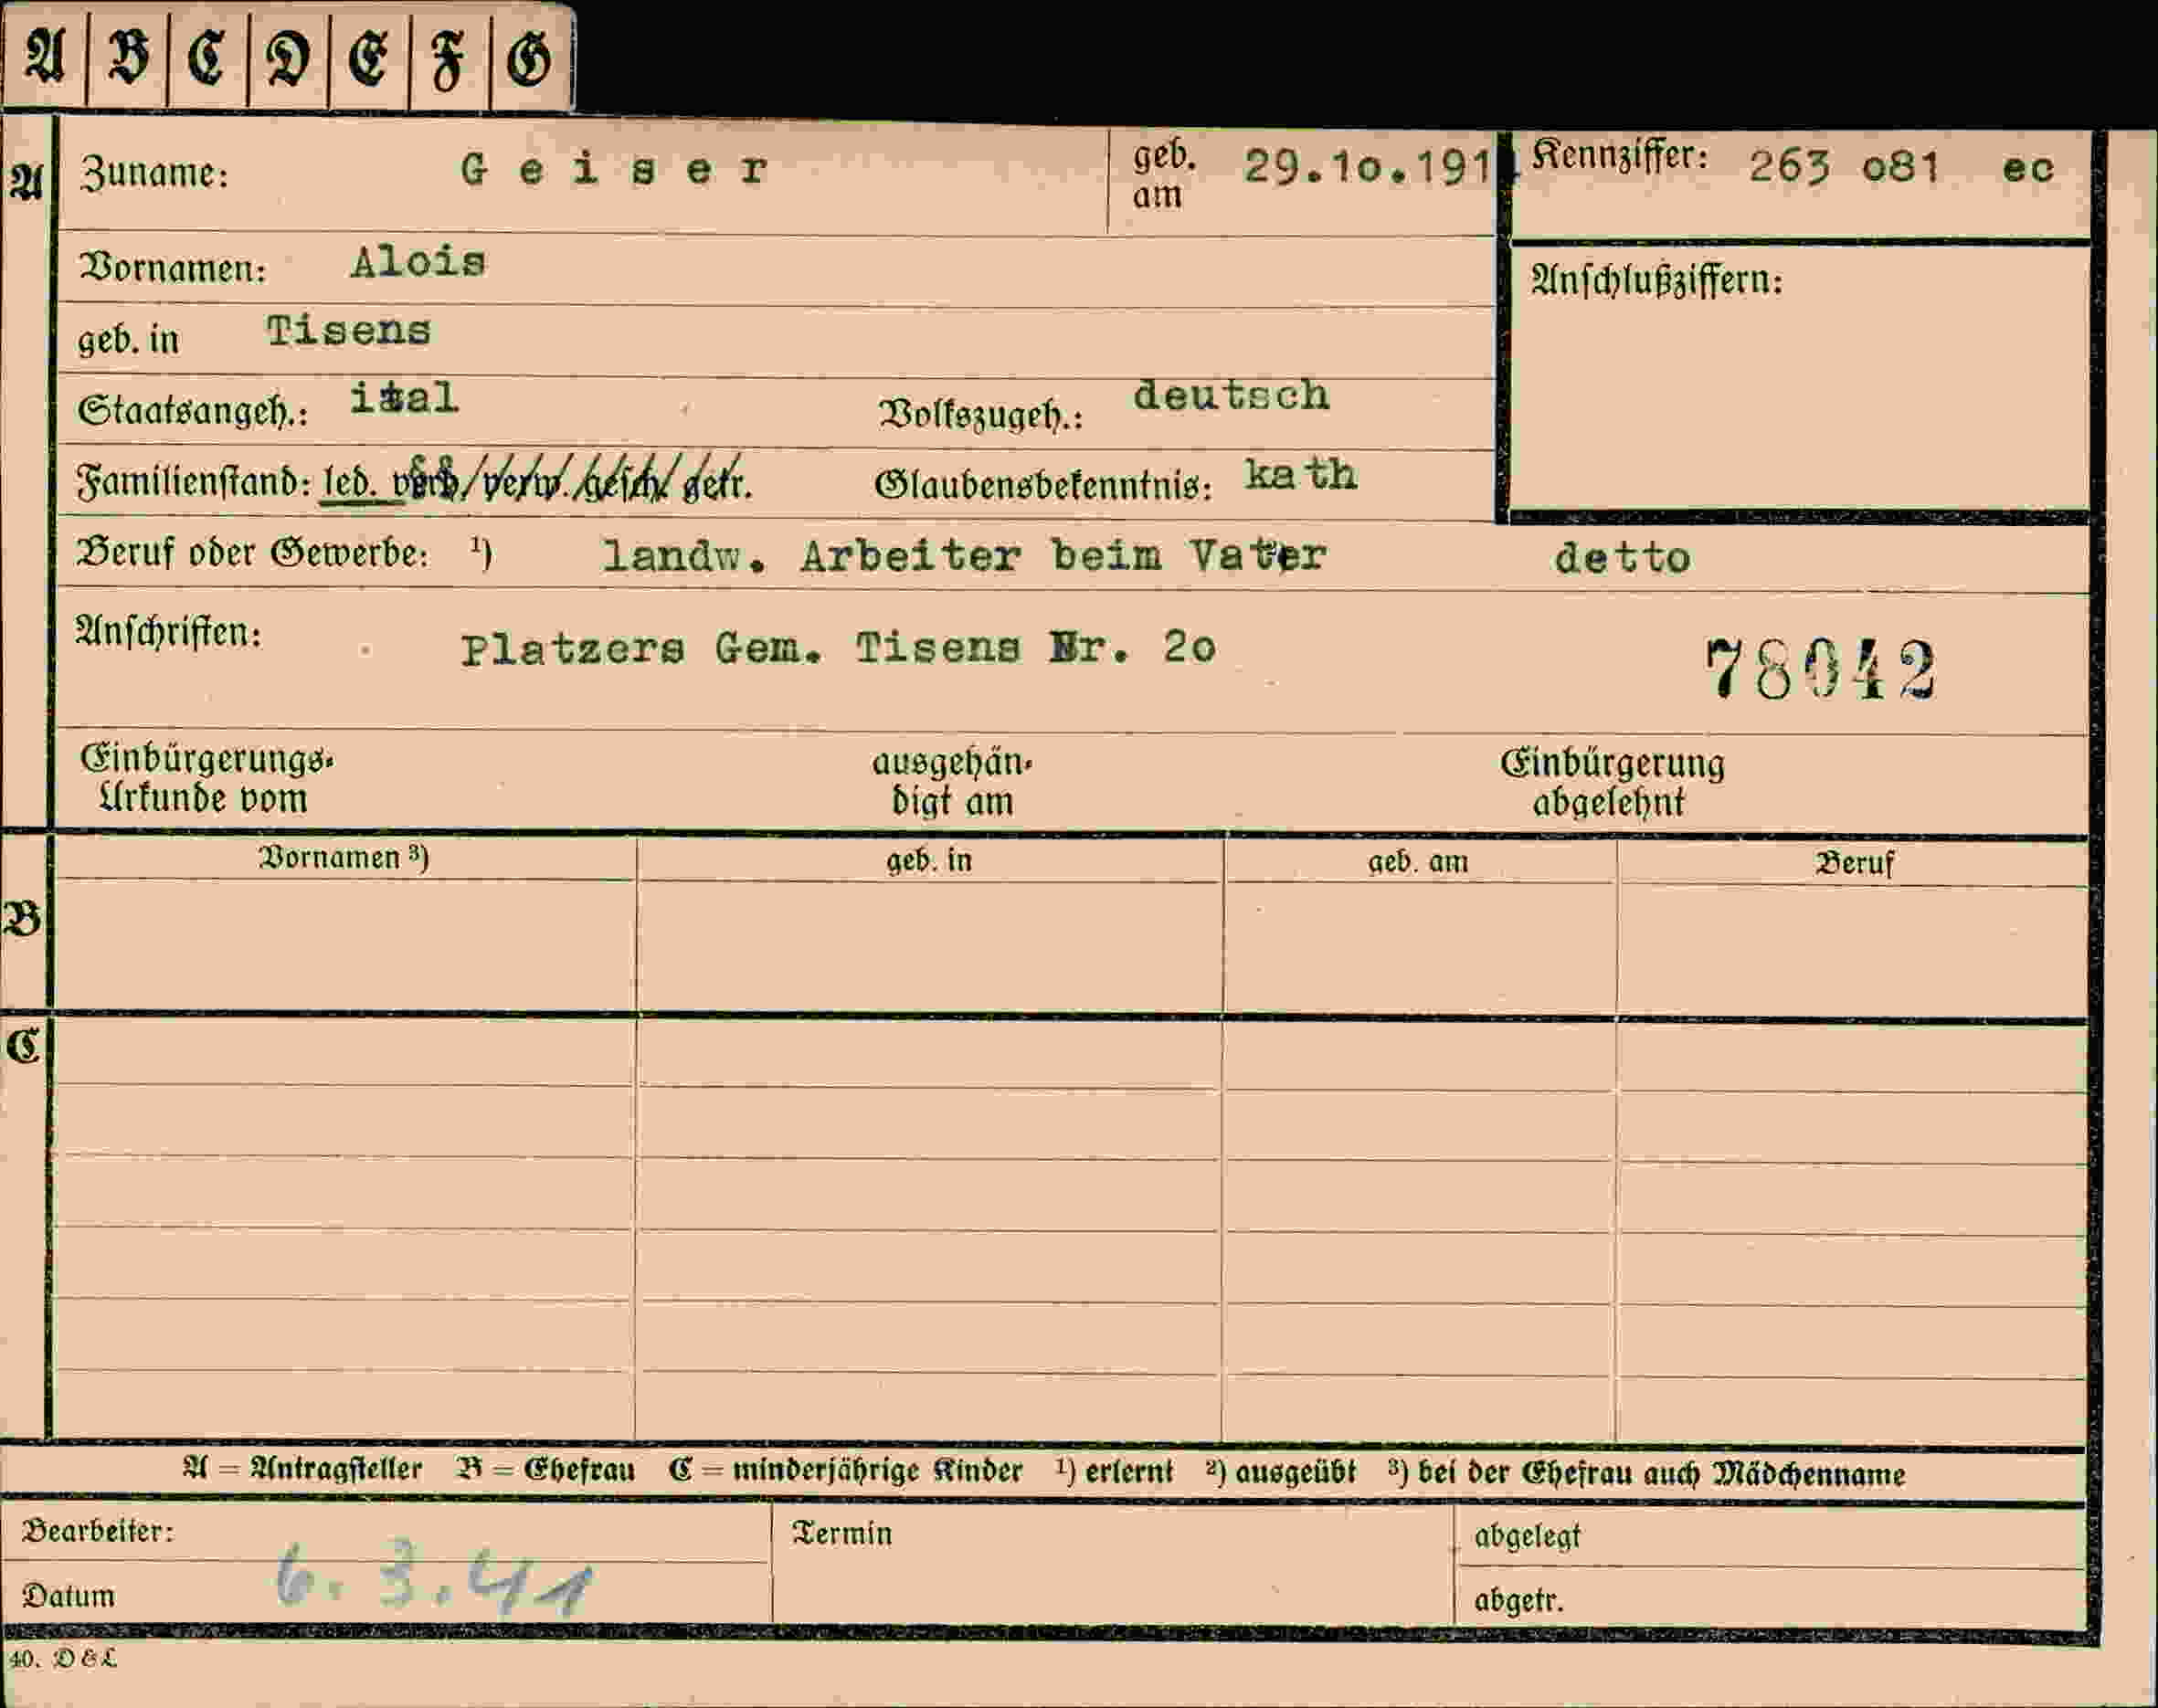 A B C D E F G
A Zuname: Geiser geb. am 29.10.191 Kennziffer: 263 o81 ec
Vornamen: Alois
Anschlußziffern:
geb. in Tisens
Staatsangeh.: ital Volkszugeh.: deutsch
Familienstand: led. verh. verw. gesch. getr. Glaubensbekenntnis: kath
Beruf oder Gewerbe: ¹) landw. Arbeiter beim Vater detto
Anschriften: Platzers Gem. Tisens Nr. 2o 78042
Einbürgerungs- ausgehän- Einbürgerung
Urkunde vom digt am abgelehnt
Vornamen ³) geb. in geb. am Beruf
B
C
A = Antragsteller B = Ehefrau C = minderjährige Kinder ¹) erlernt ²) ausgeübt ³) bei der Ehefrau auch Mädchenname
Bearbeiter: Termin abgelegt
Datum 6. 3. 41 abgetr.
40. D & L